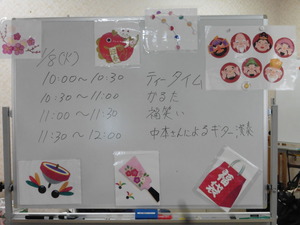 1/8(火)
10:00〜10:30 ティータイム
10:30〜11:00 かるた
11:00〜11:30 福笑い
11:30〜12:00 中本さんによるギター演奏
福袋